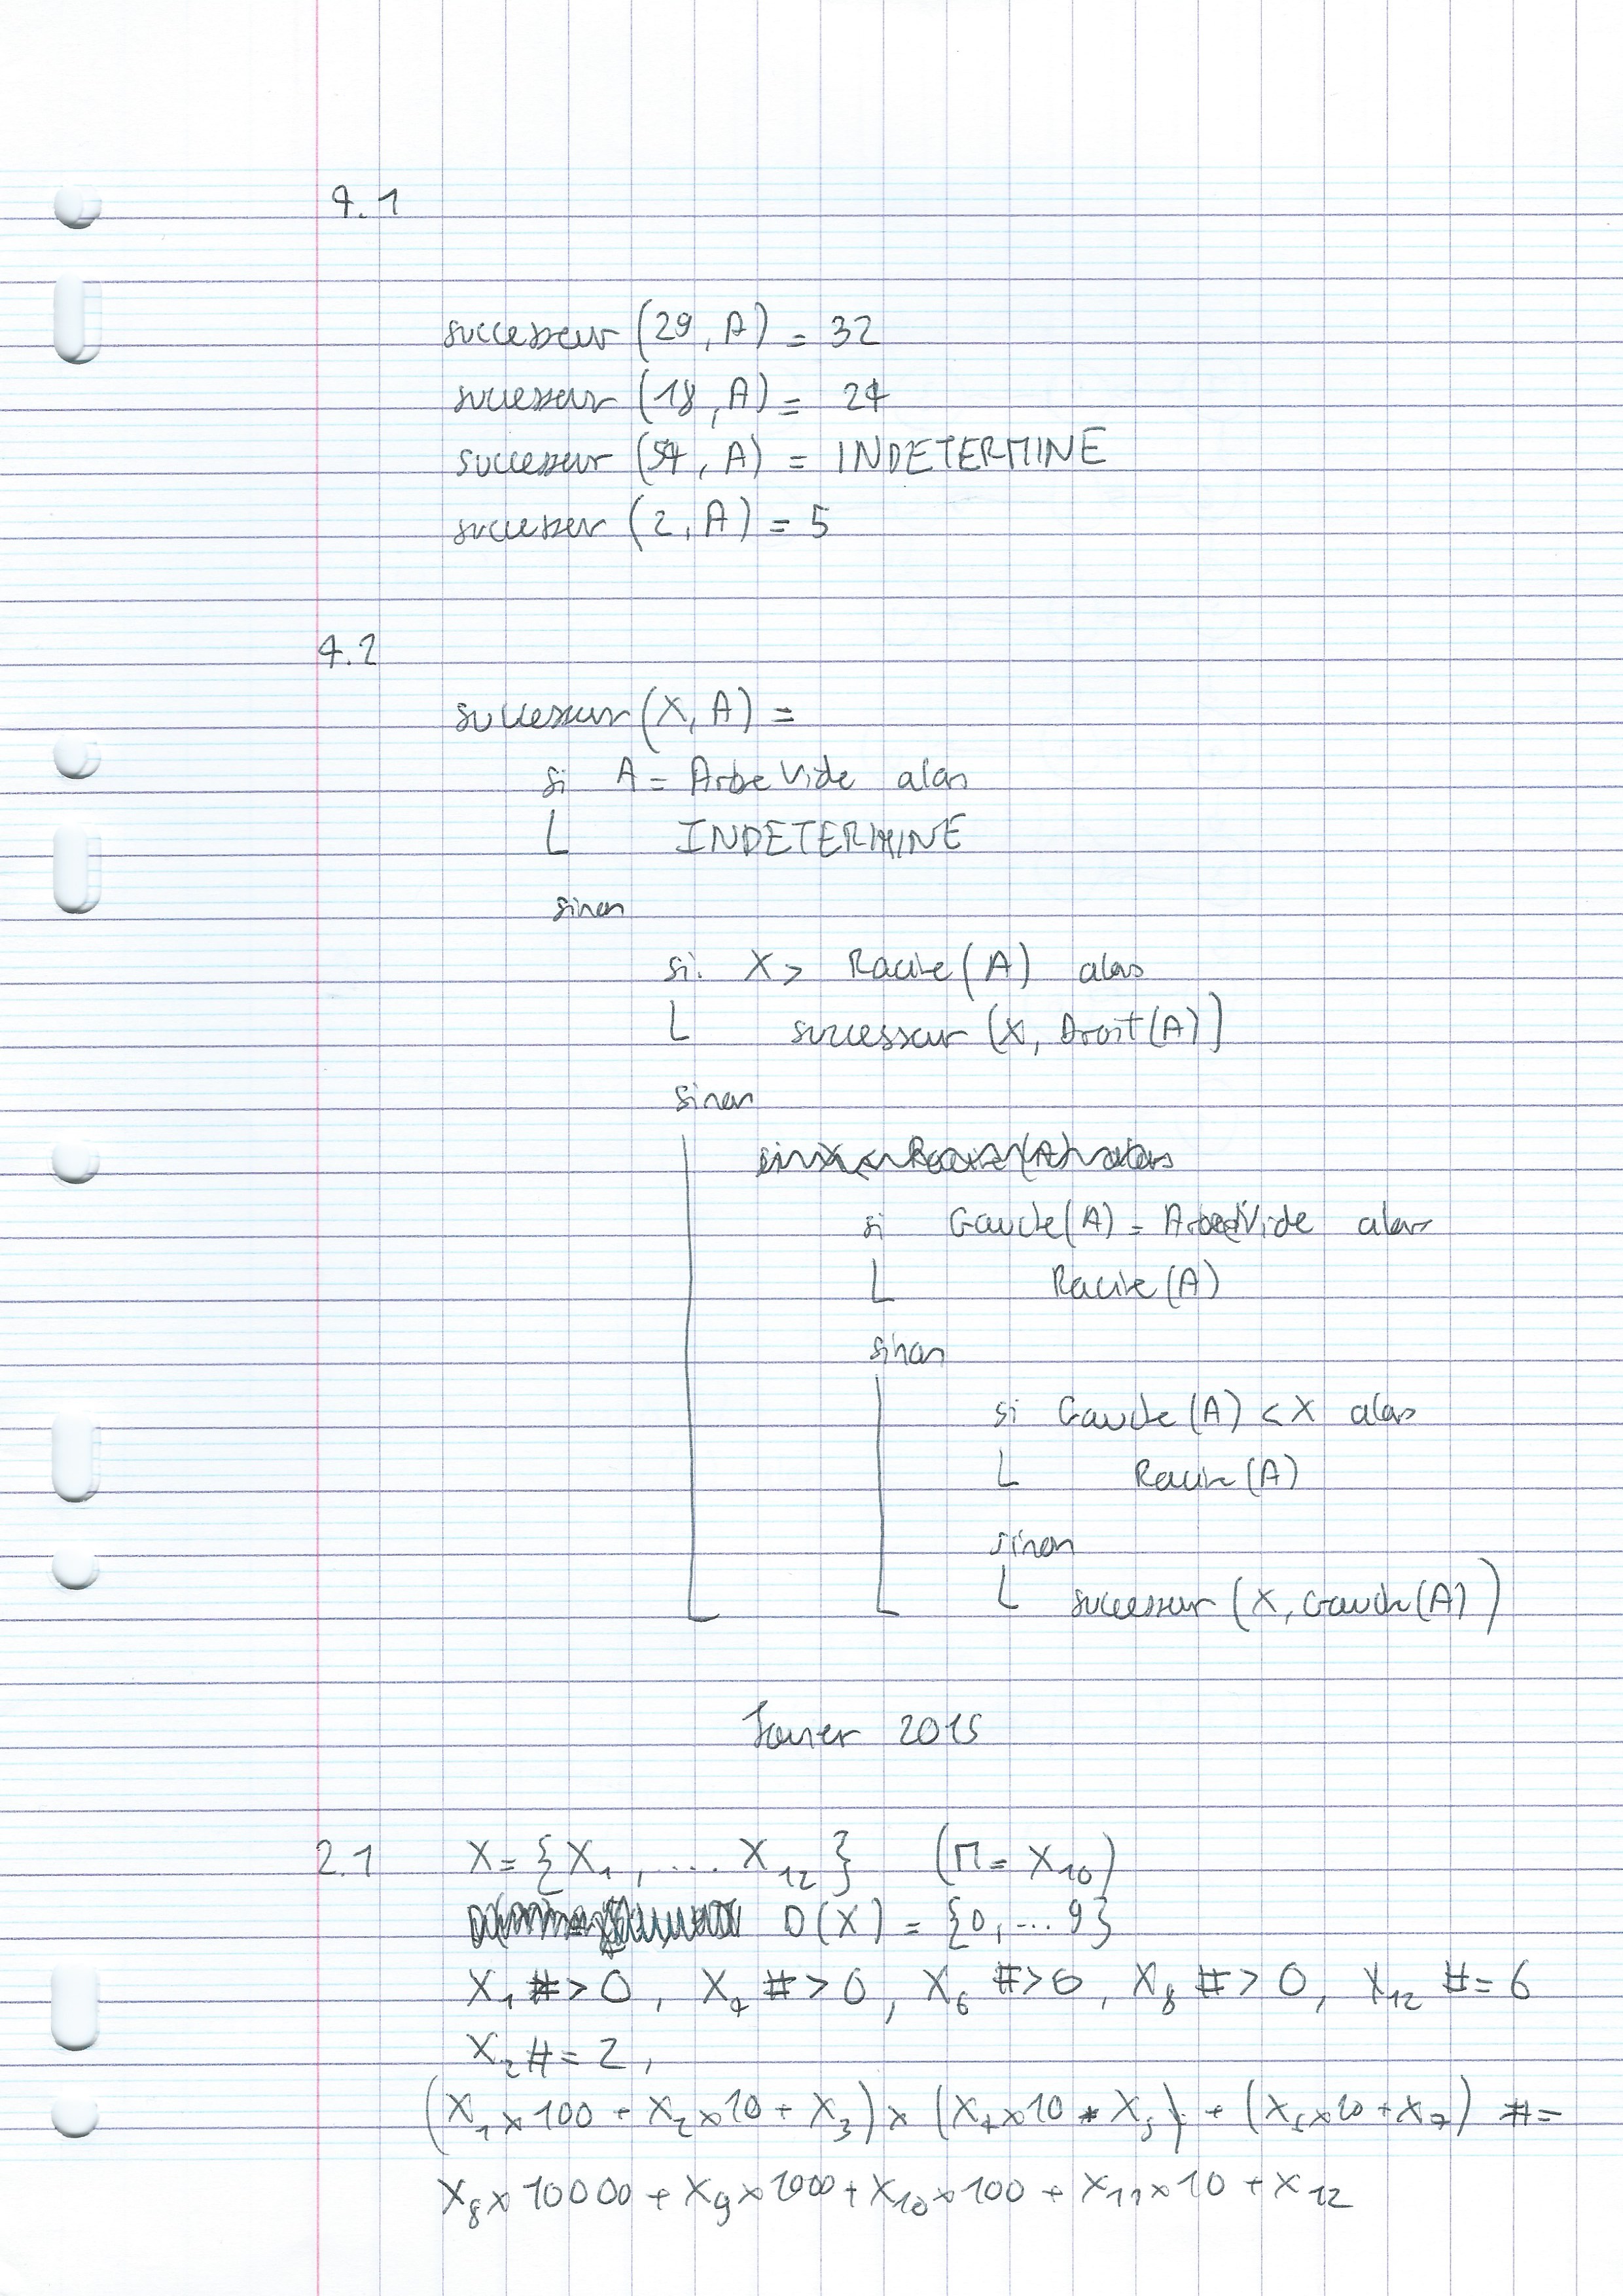 4.1
successeur (29, A) = 32
successeur (18, A) = 24
successeur (54, A) = INDETERMINE
successeur (2, A) = 5
4.2
successeur (X, A) =
si A = Arbre Vide alors
INDETERMINE
sinon
si X > Racine (A) alors
successeur (X, Droit (A))
sinon
si Gauche (A) = Arbre Vide alors
Racine (A)
sinon
si Gauche (A) < X alors
Racine (A)
sinon
successeur (X, Gauche (A))
Janvier 2015
2.1 X = {X1, .... X12} (M = X10)
D(X) = {0, ... 9}
X1 #> 0, X4 #> 0, X6 #> 0, X8 #> 0, X12 #= 6
X2 #= 2,
(X1 x 100 + X2 x 10 + X3) x (X4 x 10 + X5) + (X6 x 10 + X7) #=
X8 x 10000 + X9 x 1000 + X10 x 100 + X11 x 10 + X12